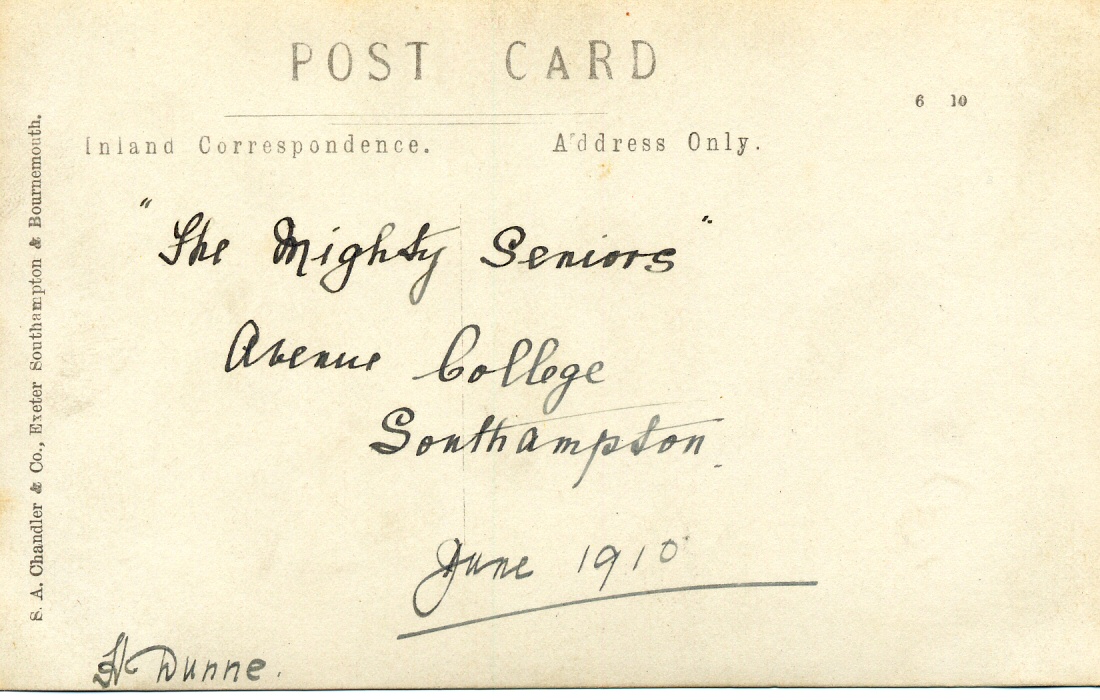 POST CARD
6 10
Inland Correspondence.
Address Only.
S. A. Chandler & Co., Exeter Southampton & Bournemouth.
"The Mighty Seniors"
Avenue College
Southampton.
June 1910
H Dunne.